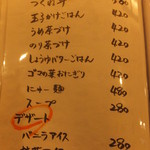 つくね丼 420
玉子かけごはん 420
うめ茶づけ 420
のり茶づけ 420
しょうゆバターごはん 420
ゴマの葉おにぎり 420
にゅー麺 480
スープ 280
デザート
バニラアイス 280